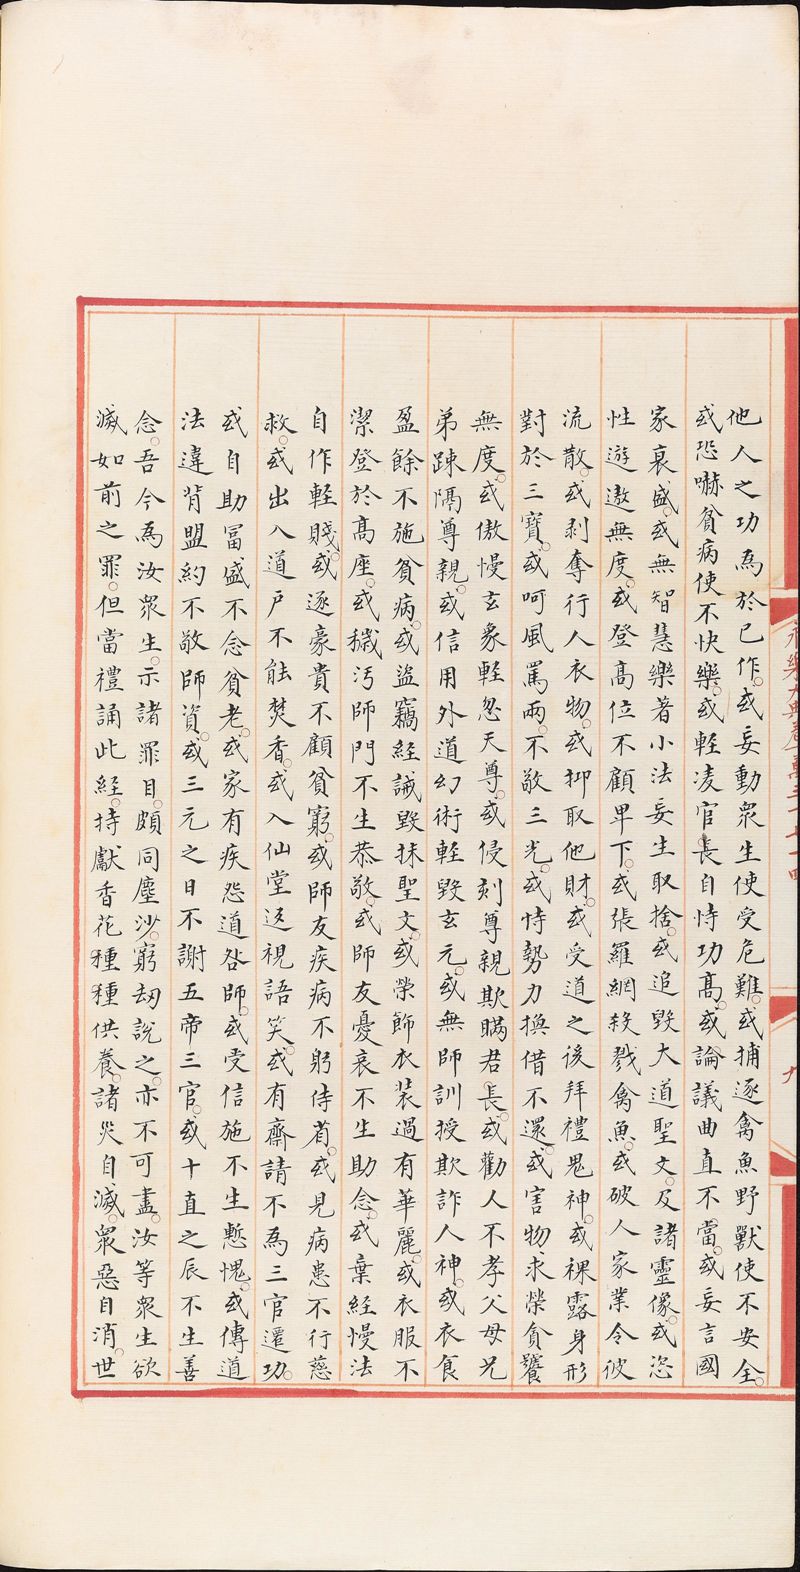 他人之功為於己作或妄動衆生使受危難或捕逐禽魚野獸使不安全
或恐嚇貧病使不快樂或輕凌官長自恃功高或論議曲直不當或妄言國
家衰盛或無智慧樂著小法妄生取捨或追毀大道聖文及諸靈像或恣
性遊遨無度或登高位不顧卑下或張羅網殺戮禽魚或破人家業令彼
流散或剥奪行人衣物或抑取他財或受道之後拜禮鬼神或裸露身形
對於三寶或呵風罵雨不敬三光或恃勢力換借不還或害物求榮貪饕
無度或傲慢玄象輕忽天尊或侵刻尊親欺瞞君長或勸人不孝父母兄
弟踈隔尊親或信用外道幻術輕毀玄元或無師訓授欺詐人神或衣食
盈餘不施貧病或盜竊經誡毀抹聖文或榮飾衣装過有華麗或衣服不
潔登於高座或穢污師門不生恭敬或師友憂哀不生助念或棄經慢法
自作輕賤或逐豪貴不顧貧窮或師友疾病不躬侍省或見病患不行慈
救或出入道户不能焚香或入仙堂迋視語笑或有齋請不為三官遷功
或自助冨盛不念貧老或家有疾怨道咎師或受信施不生慙愧或傳道
法違背盟約不敬師資或三元之日不謝五帝三官或十直之辰不生善
念吾今為汝衆生示諸罪目頗同塵沙窮刼說之亦不可盡汝等衆生欲
滅如前之罪但當禮誦此經持獻香花種種供養諸災自滅衆惡自消世
永樂大典卷
九